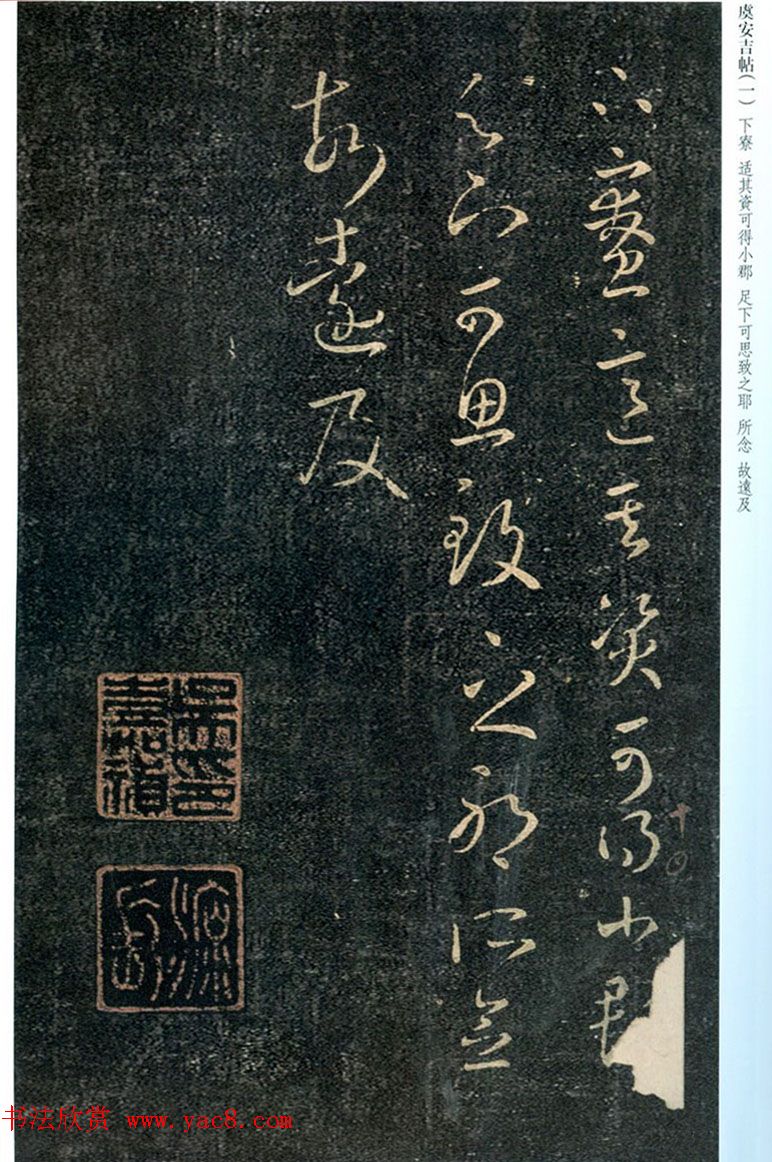 虞安吉帖(一) 下寮 适其資可得小郡 足下可思致之耶 所念 故遠及
下寮适其資可得小郡
足下可思致之耶所念
故遠及
书法欣赏 www.yac8.com